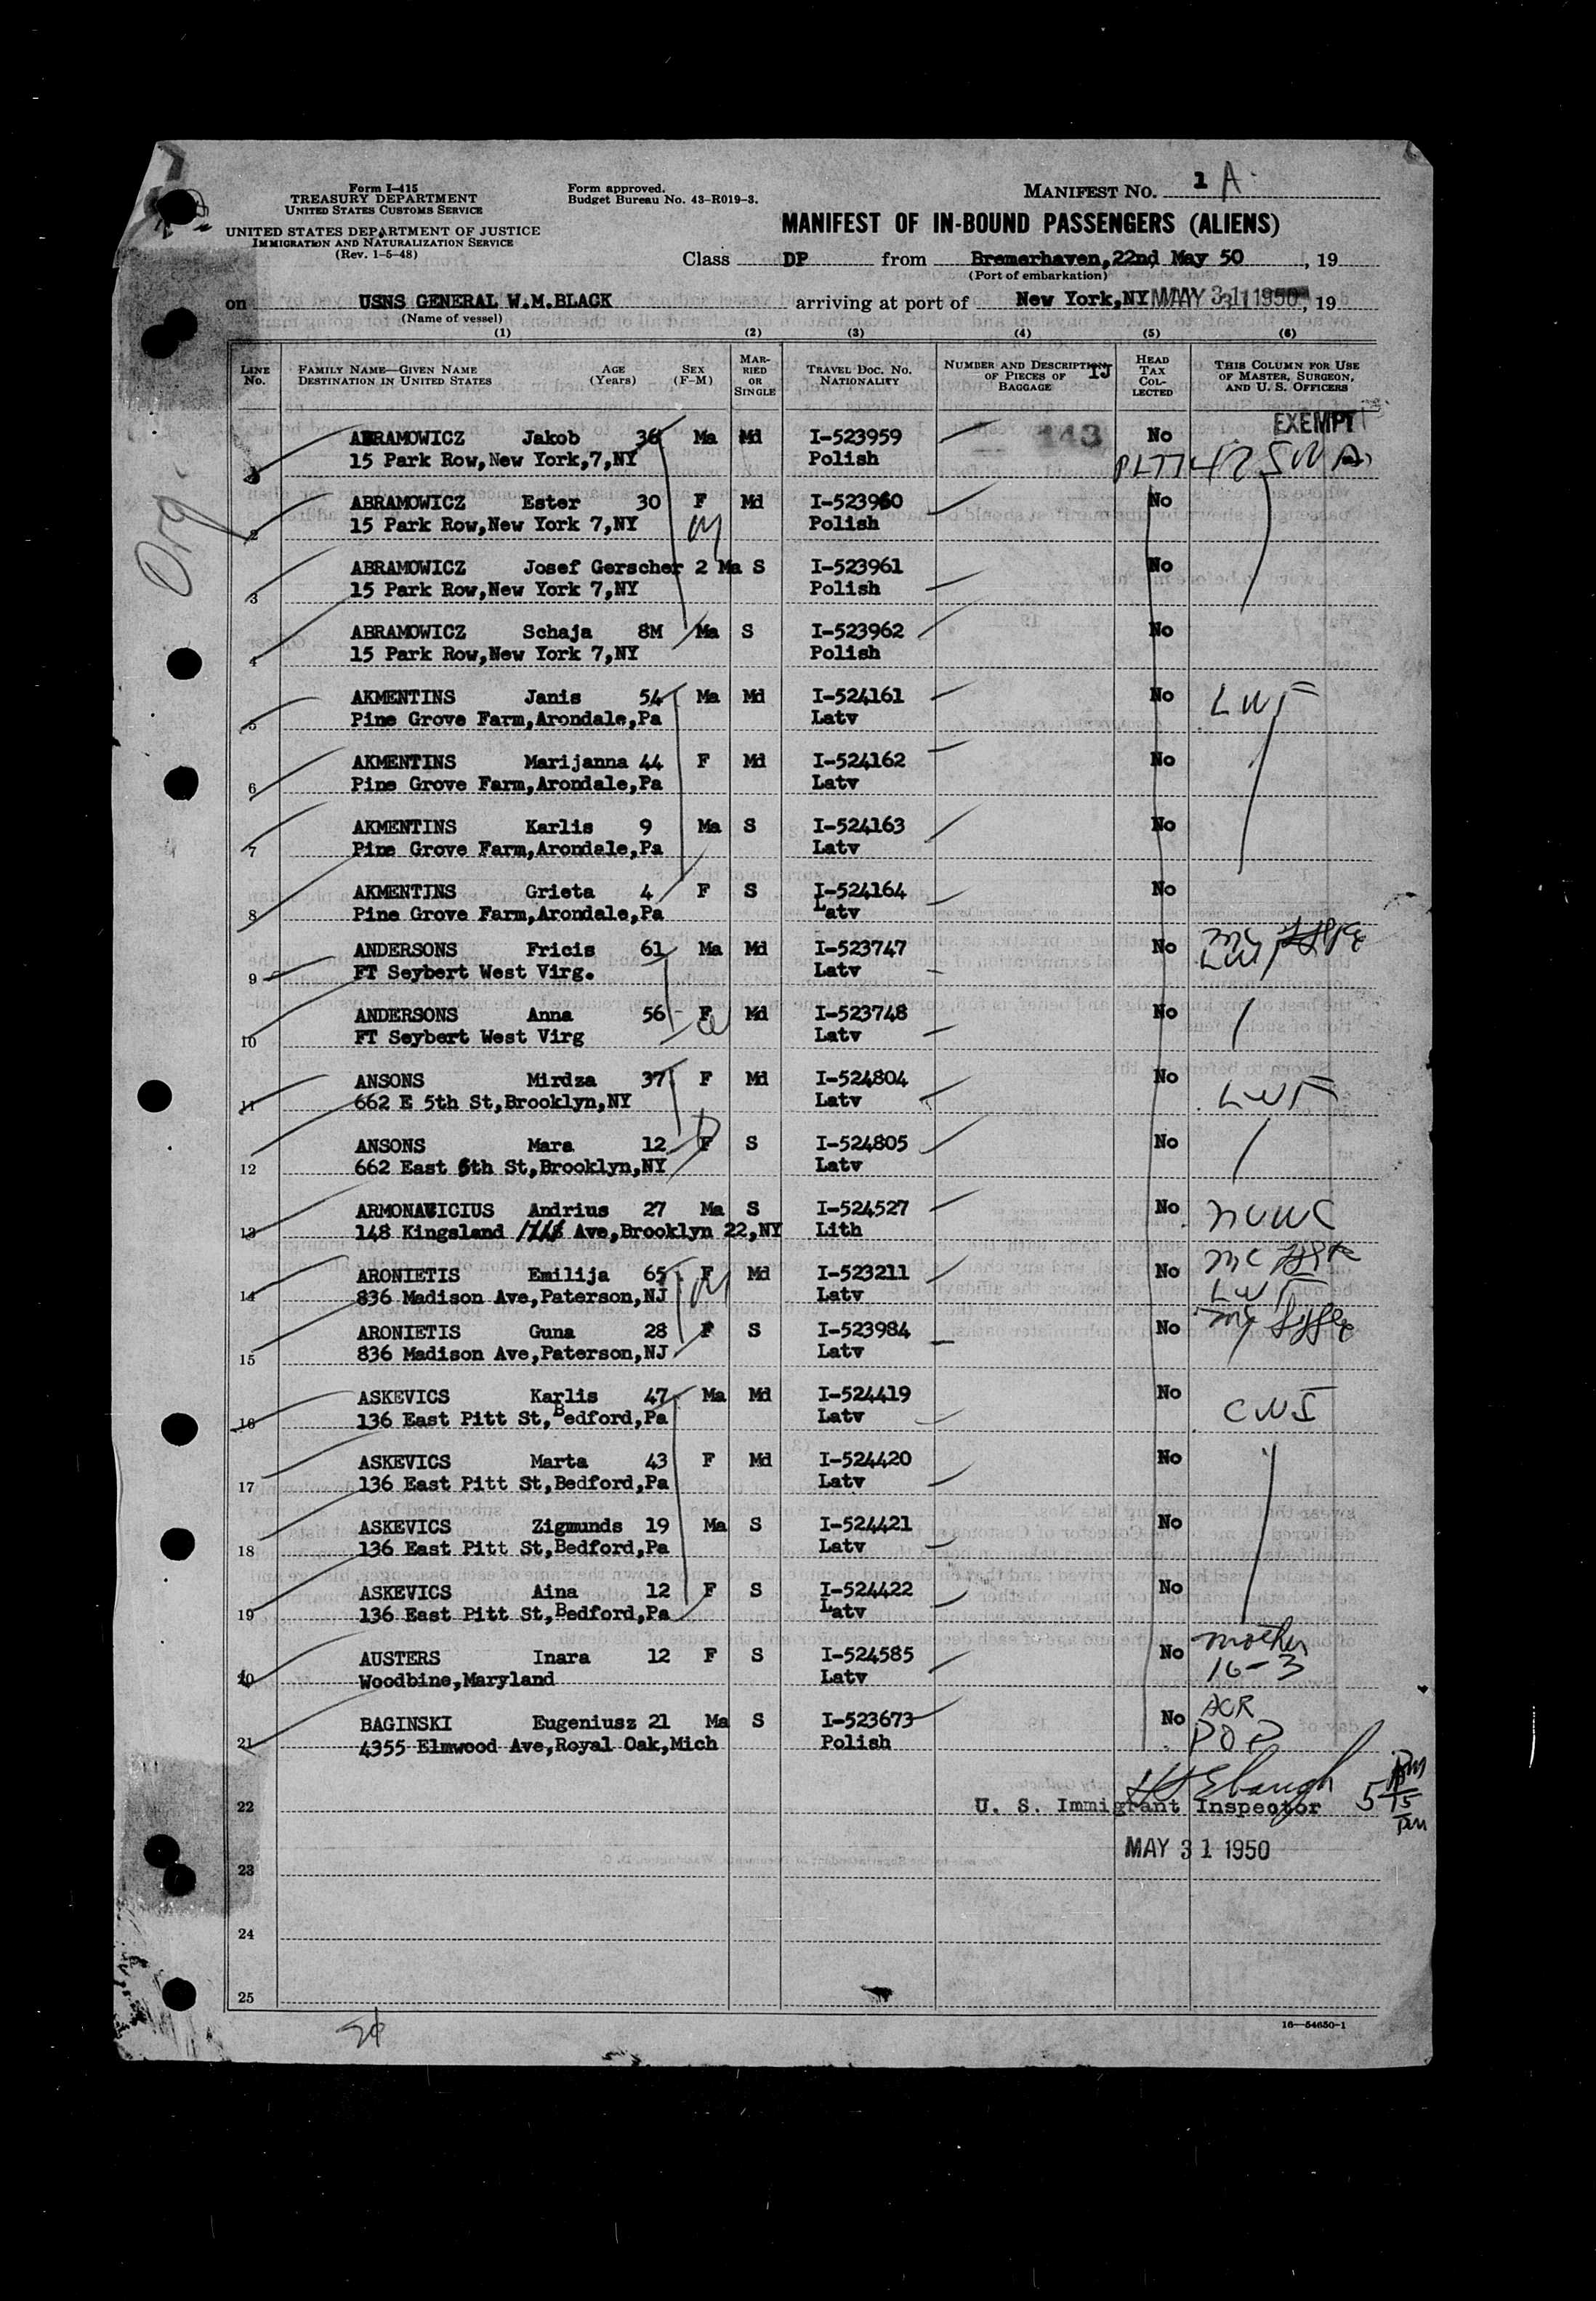 Form I-415
TREASURY DEPARTMENT
UNITED STATES CUSTOMS SERVICE
UNITED STATES DEPARTMENT OF JUSTICE
IMMIGRATION AND NATURALIZATION SERVICE
(Rev. 1-5-48)
Form approved.
Budget Bureau No. 43-R019-3.
MANIFEST NO. 1 A
MANIFEST OF IN-BOUND PASSENGERS (ALIENS)
Class DP from Bremerhaven,22nd May 50, 19
(Port of embarkation)
on USNS GENERAL W.M.BLACK arriving at port of New York,NY MAY 31 1950, 19
(Name of vessel)
(1) (2) (3) (4) (5) (6)
LINE No. FAMILY NAME—GIVEN NAME DESTINATION IN UNITED STATES AGE (Years) SEX (F-M) MARRIED OR SINGLE TRAVEL DOC. NO. NATIONALITY NUMBER AND DESCRIPTION OF PIECES OF BAGGAGE HEAD TAX COLLECTED THIS COLUMN FOR USE OF MASTER, SURGEON, AND U. S. OFFICERS
Org.
EXEMPT
ABRAMOWICZ Jakob 36 Ma Md I-523959 143 No
15 Park Row,New York,7,NY Polish
2 ABRAMOWICZ Ester 30 F Md I-523960 No
15 Park Row,New York 7,NY Polish
3 ABRAMOWICZ Josef Gerscher 2 Ma S I-523961 No
15 Park Row,New York 7,NY Polish
4 ABRAMOWICZ Schaja 8M Ma S I-523962 No
15 Park Row,New York 7,NY Polish
5 AKMENTINS Janis 54 Ma Md I-524161 No LWF
Pine Grove Farm,Arondale,Pa Latv
6 AKMENTINS Marijanna 44 F Md I-524162 No
Pine Grove Farm,Arondale,Pa Latv
7 AKMENTINS Karlis 9 Ma S I-524163 No
Pine Grove Farm,Arondale,Pa Latv
8 AKMENTINS Grieta 4 F S I-524164 No
Pine Grove Farm,Arondale,Pa Latv
9 ANDERSONS Fricis 61 Ma Md I-523747 No
FT Seybert West Virg. Latv
10 ANDERSONS Anna 56 F Md I-523748 No
FT Seybert West Virg Latv
11 ANSONS Mirdza 37 F Md I-524804 No LWF
662 E 5th St,Brooklyn,NY Latv
12 ANSONS Mara 12 F S I-524805 No
662 East 5th St,Brooklyn,NY Latv
13 ARMONAVICIUS Andrius 27 Ma S I-524527 No NCWC
148 Kingsland Ave,Brooklyn 22,NY Lith
14 ARONIETIS Emilija 65 F Md I-523211 No
836 Madison Ave,Paterson,NJ Latv LWF
15 ARONIETIS Guna 28 F S I-523984 No
836 Madison Ave,Paterson,NJ Latv
16 ASKEVICS Karlis 47 Ma Md I-524419 No
136 East Pitt St,Bedford,Pa Latv
17 ASKEVICS Marta 43 F Md I-524420 No
136 East Pitt St,Bedford,Pa Latv
18 ASKEVICS Zigmunds 19 Ma S I-524421 No
136 East Pitt St,Bedford,Pa Latv
19 ASKEVICS Aina 12 F S I-524422 No
136 East Pitt St,Bedford,Pa Latv
20 AUSTERS Inara 12 F S I-524585 No mother
Woodbine,Maryland Latv 16-3
21 BAGINSKI Eugeniusz 21 Ma S I-523673 No ACR
4355 Elmwood Ave,Royal Oak,Mich Polish
22 U. S. Immigrant Inspector
MAY 31 1950
23
24
25
16—54650-1